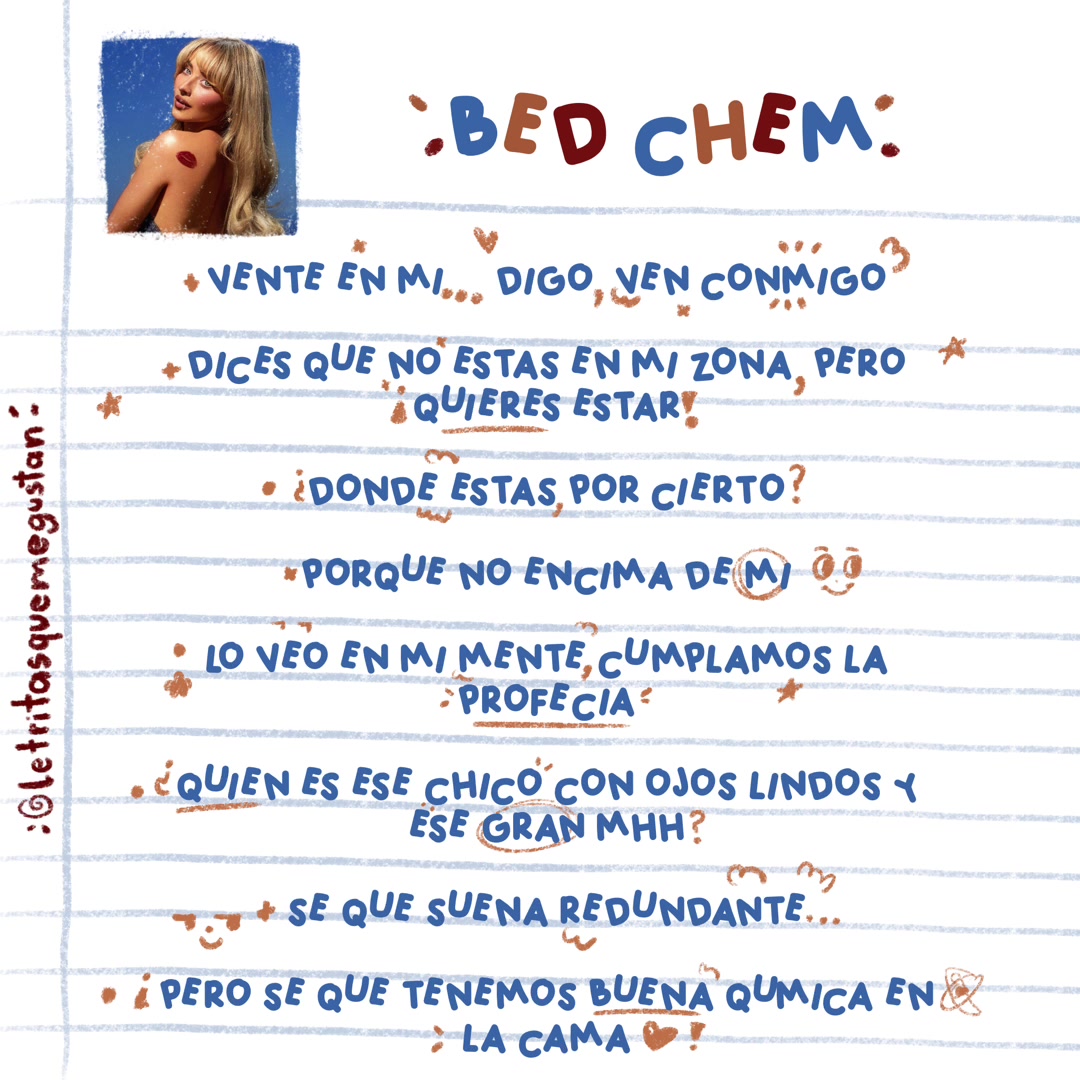 BED CHEM
VENTE EN MI... DIGO, VEN CONMIGO
DICES QUE NO ESTAS EN MI ZONA, PERO
¡QUIERES ESTAR!
¿DONDE ESTAS, POR CIERTO?
PORQUE NO ENCIMA DE MI
LO VEO EN MI MENTE, CUMPLAMOS LA
PROFECIA
¿QUIEN ES ESE CHICO CON OJOS LINDOS Y
ESE GRAN MHH?
SE QUE SUENA REDUNDANTE...
¡PERO SE QUE TENEMOS BUENA QUMICA EN
LA CAMA!
@letritasquemegustan